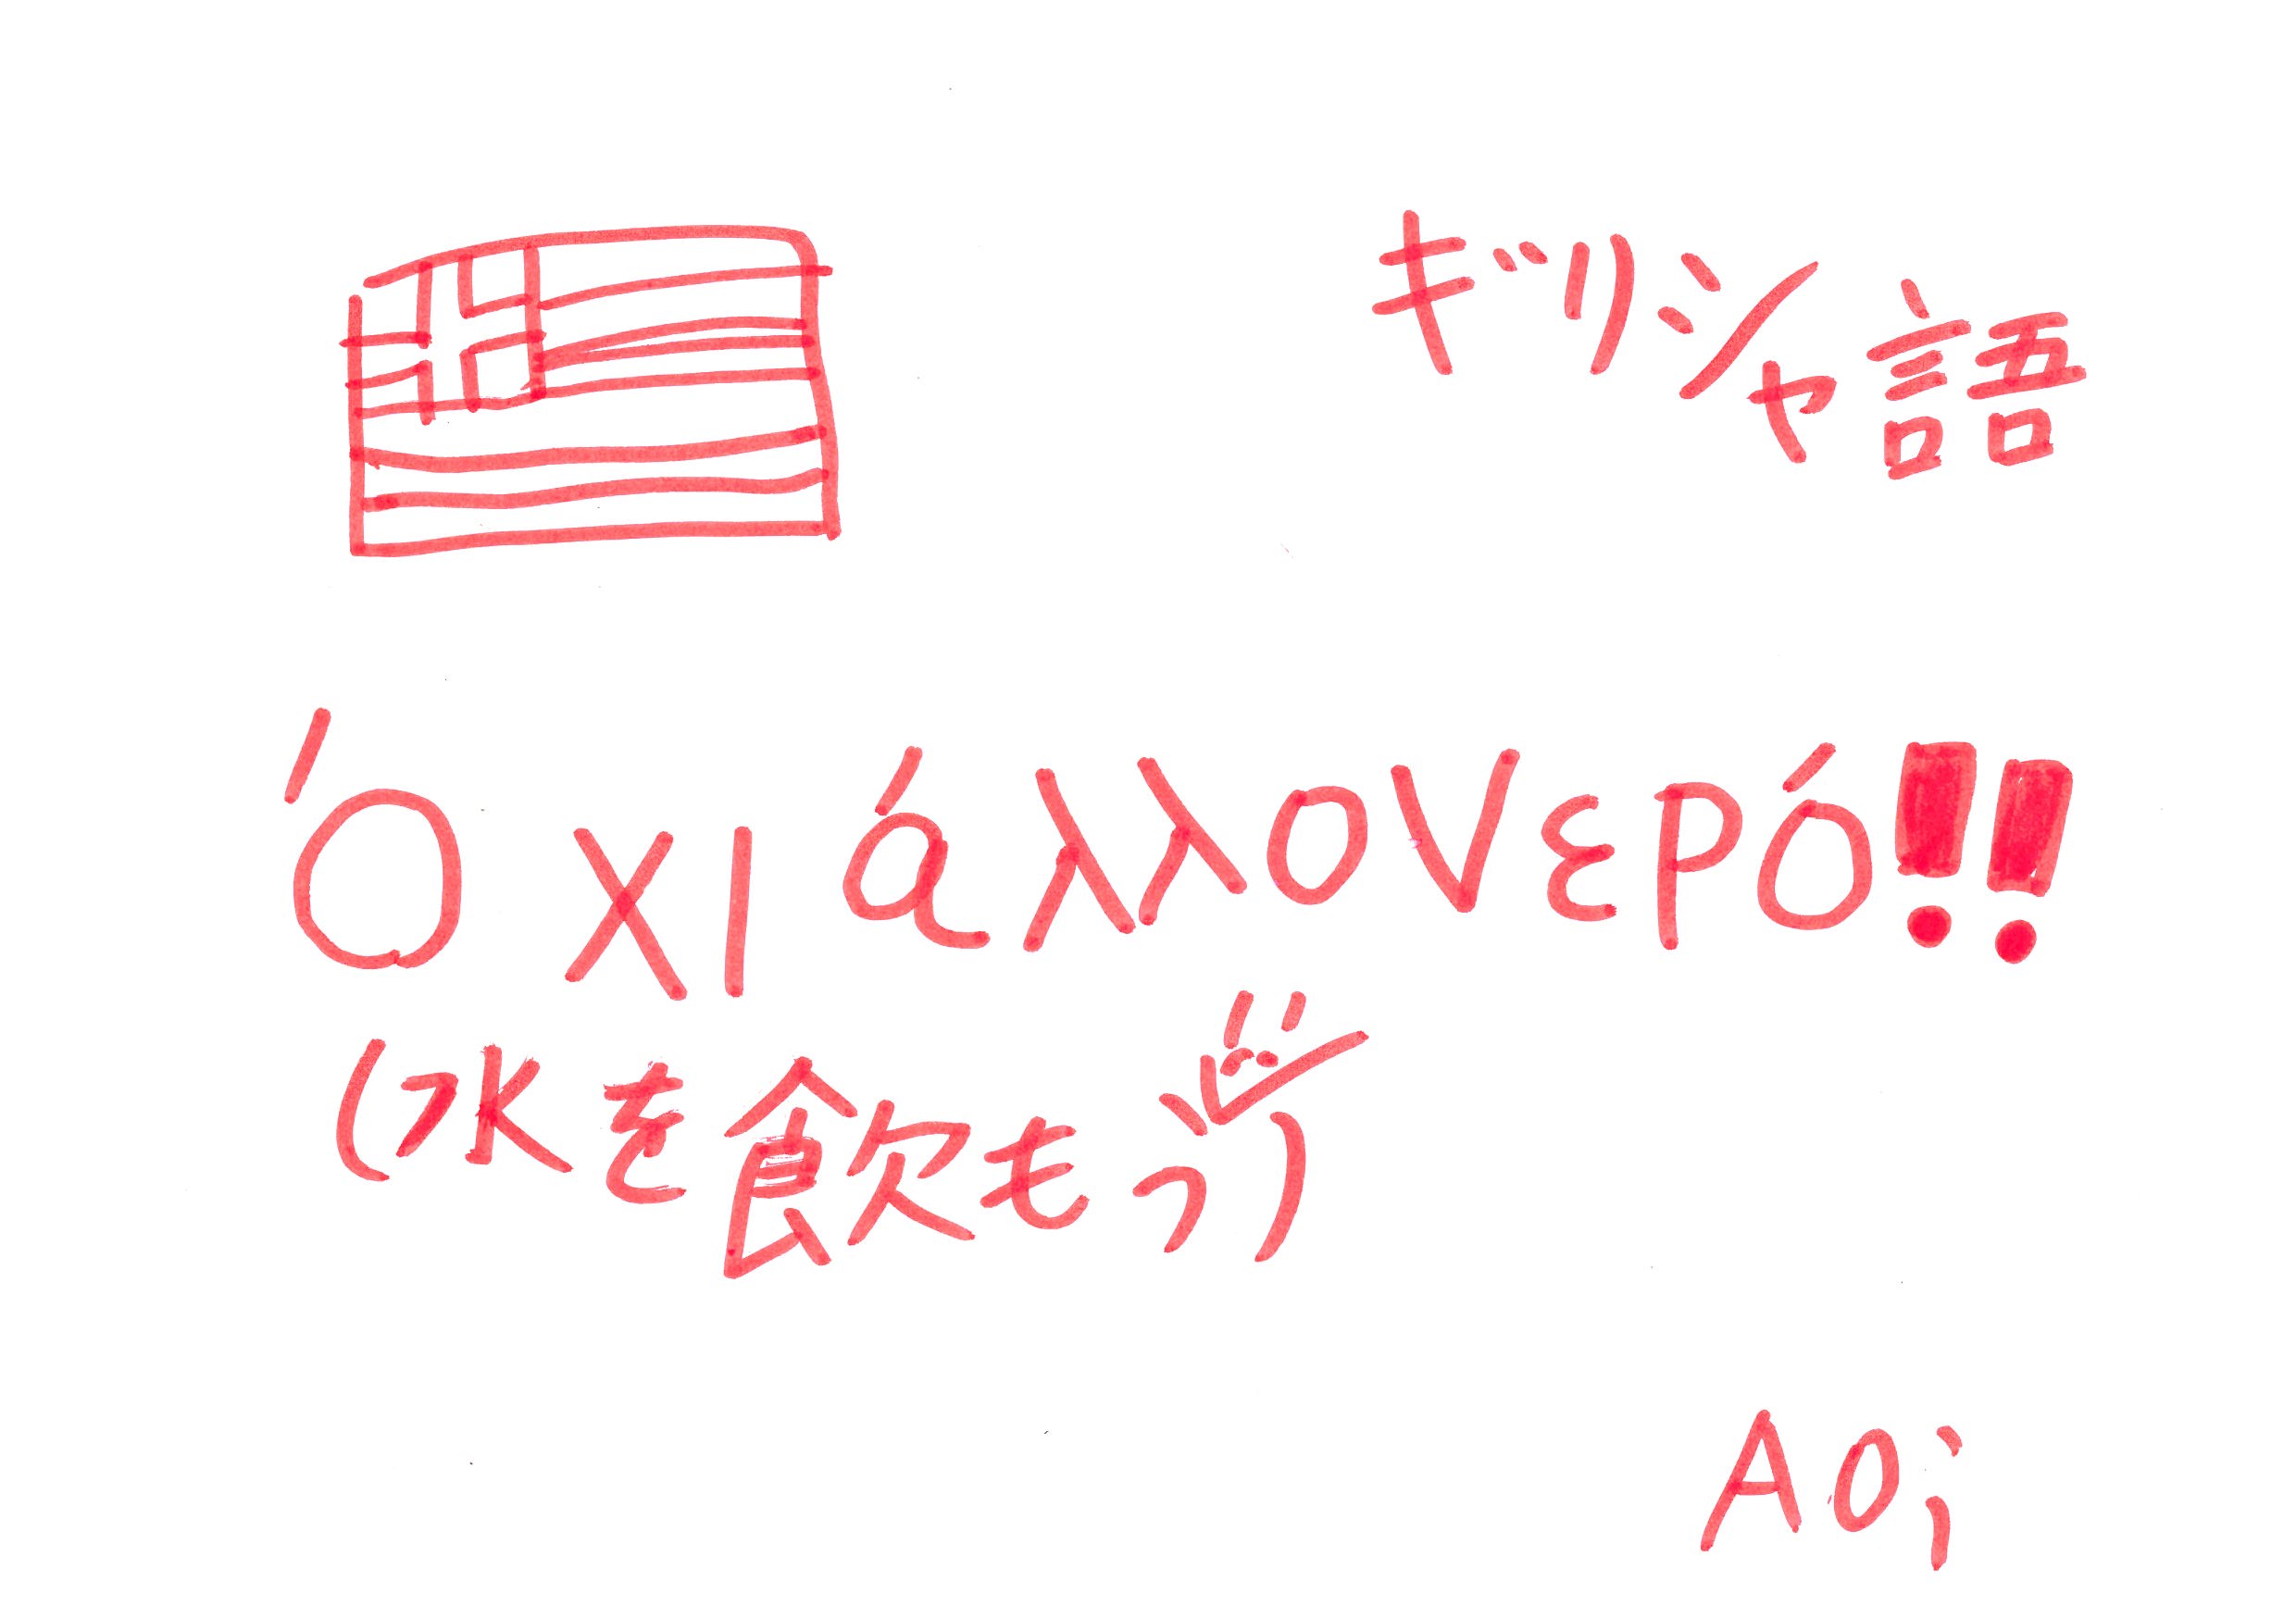 ギリシャ語
Όχι άλλο νερό!!
(水を飲もう)
Aoi